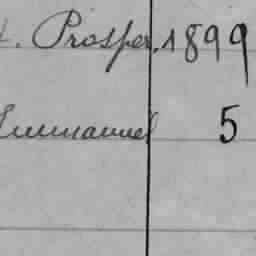 t. Prosper. 1899
Emmanuel 5